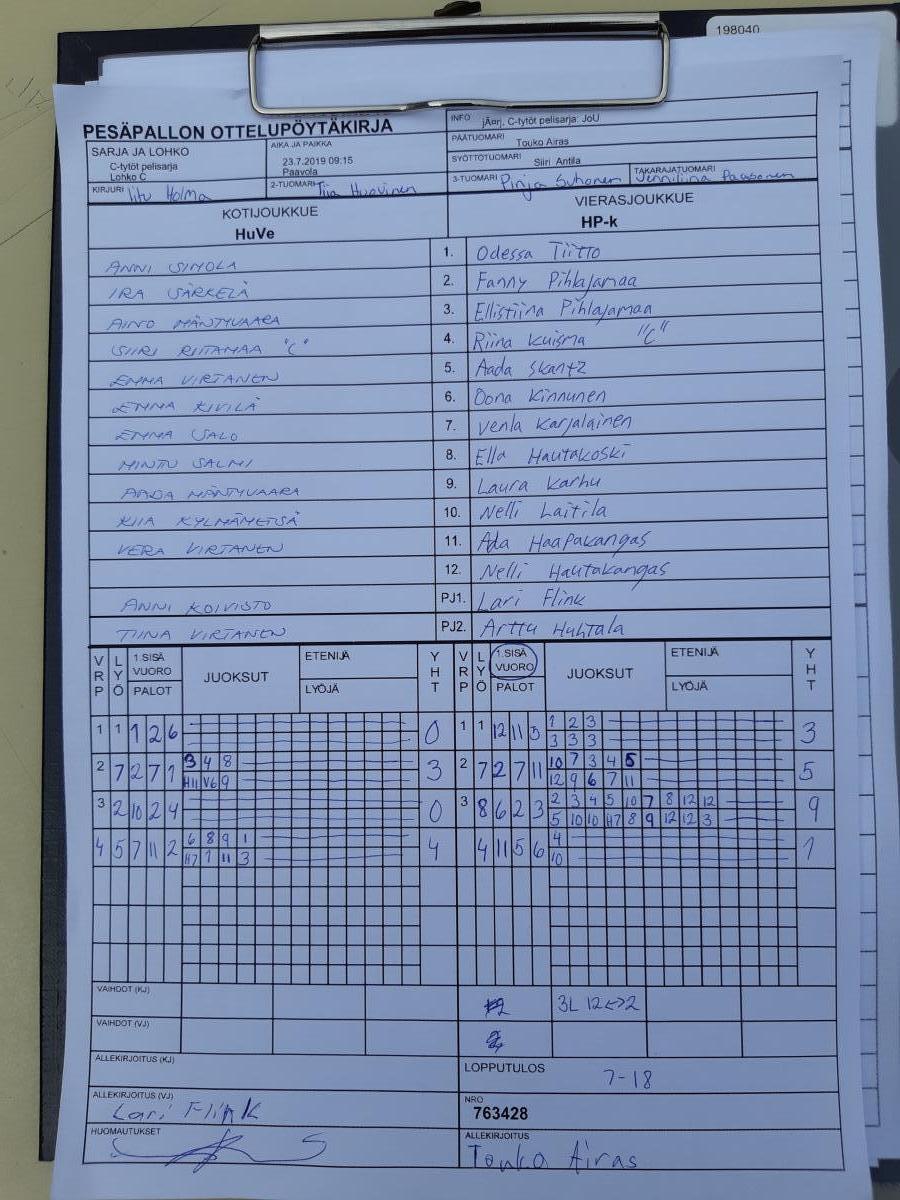 198040
PESÄPALLON OTTELUPÖYTÄKIRJA
INFO jÄørj, C-tytöt pelisarja: JoU
SARJA JA LOHKO C-tytöt pelisarja Lohko C
AIKA JA PAIKKA 23.7.2019 09:15 Paavola
PÄÄTUOMARI Touko Airas
SYÖTTÖTUOMARI Siiri Antila
KIRJURI Iitu Holma
2-TUOMARI Tiia Huovinen
3-TUOMARI Pinja Suhonen
TAKARAJATUOMARI Jenniliina Paasonen
KOTIJOUKKUE
HuVe
VIERASJOUKKUE
HP-k
ANNI SIMOLA 1. Odessa Tiitto
IRA SÄRKELÄ 2. Fanny Pihlajamaa
AINO MÄNTYVAARA 3. Ellistiina Pihlajamaa
SIIRI RIITAMAA "C" 4. Riina Kuisma "C"
EMMA VIRTANEN 5. Aada Skantz
EMMA KIVILÄ 6. Oona Kinnunen
EMMA SALO 7. Venla Karjalainen
MINTU SALMI 8. Ella Hautakoski
AADA MÄNTYVAARA 9. Laura Karhu
KIIA KYLMÄMETSÄ 10. Nelli Laitila
VERA VIRTANEN 11. Ada Haapakangas
12. Nelli Hautakangas
ANNI KOIVISTO PJ1. Lari Flink
TIINA VIRTANEN PJ2. Arttu Huhtala
VRP LYÖ 1.SISÄ VUORO PALOT JUOKSUT ETENIJÄ LYÖJÄ YHT VRP LYÖ 1.SISÄ VUORO PALOT JUOKSUT ETENIJÄ LYÖJÄ YHT
1 1 1 2 6 0 1 1 12 11 3 1 2 3 3
3 3 3
2 7 2 7 1 3 4 8 3 2 7 2 7 11 10 7 3 4 5 5
H11 V6 9 12 9 6 7 11
3 2 10 2 4 0 3 8 6 2 3 2 3 4 5 10 7 8 12 12 9
5 10 10 H7 8 9 12 12 3
4 5 7 11 2 6 8 9 1 4 4 11 5 6 4 1
H7 1 11 3 10
VAIHDOT (KJ) 3L 12<->2
VAIHDOT (VJ)
ALLEKIRJOITUS (KJ)
LOPPUTULOS 7-18
ALLEKIRJOITUS (VJ) Lari Flink
NRO 763428
HUOMAUTUKSET
ALLEKIRJOITUS Touko Airas